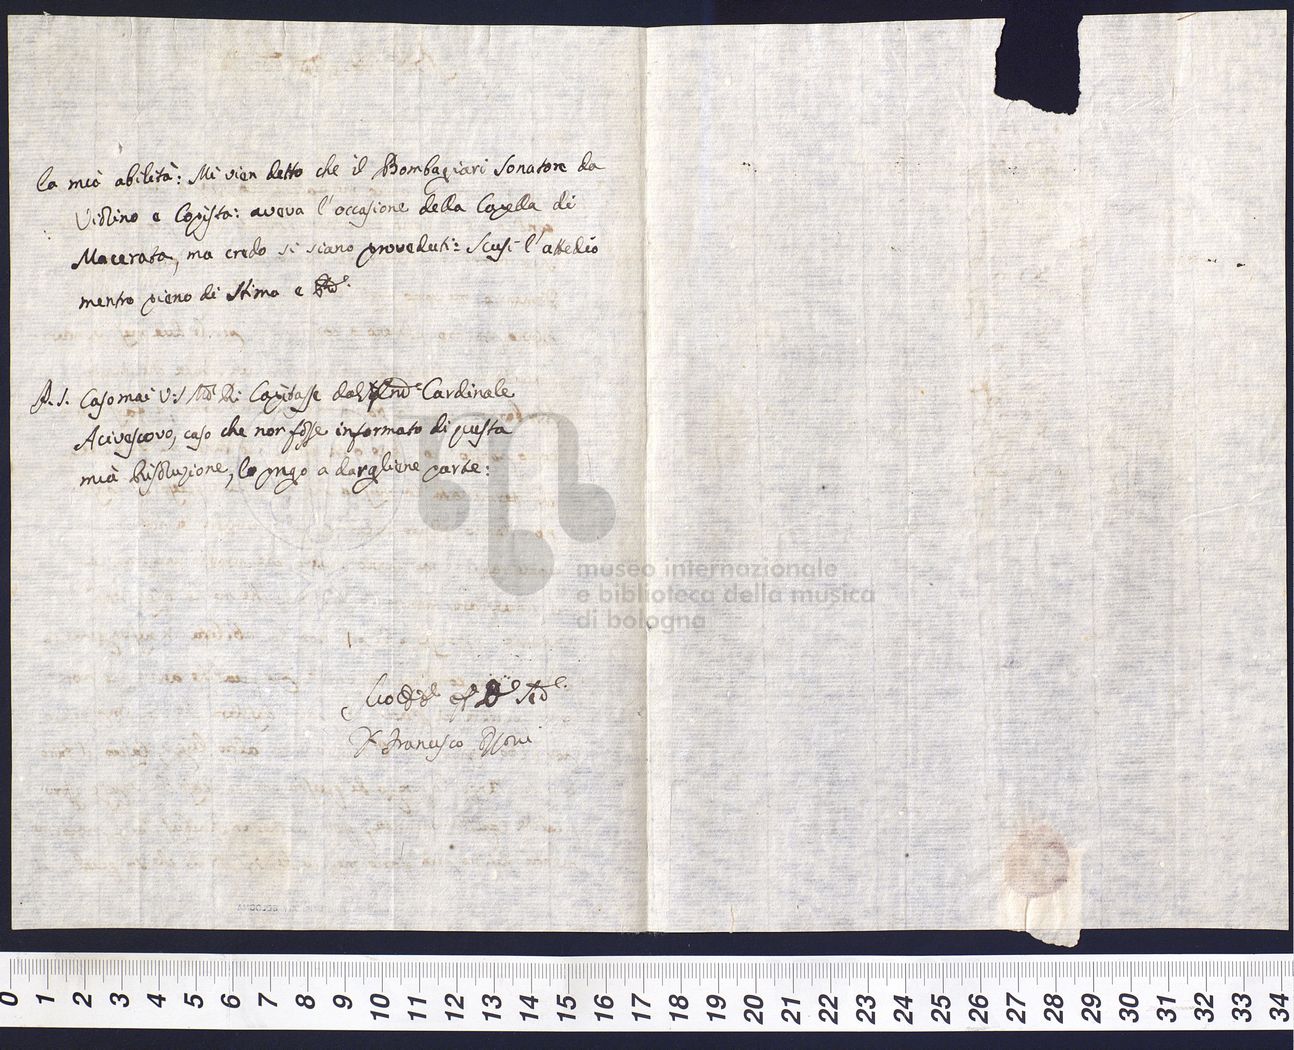 la mià abilità: Mi vien detto che il Bombagiari Sonatore da
Violino e Copista: aveva l'occasione della Capella di
Macerata, ma credo si siano proveduti: Scusi l'attedio
mentre pieno di Stima e
P. S. Casomai V: S M: R: Capitasse dal Cardinale
Acivescovo, caso che non fosse informato di questa
mià Risoluzione, lo prego a dargliene parte:
Francesco
museo internazionale
e biblioteca della musica
di bologna
0 1 2 3 4 5 6 7 8 9 10 11 12 13 14 15 16 17 18 19 20 21 22 23 24 25 26 27 28 29 30 31 32 33 34